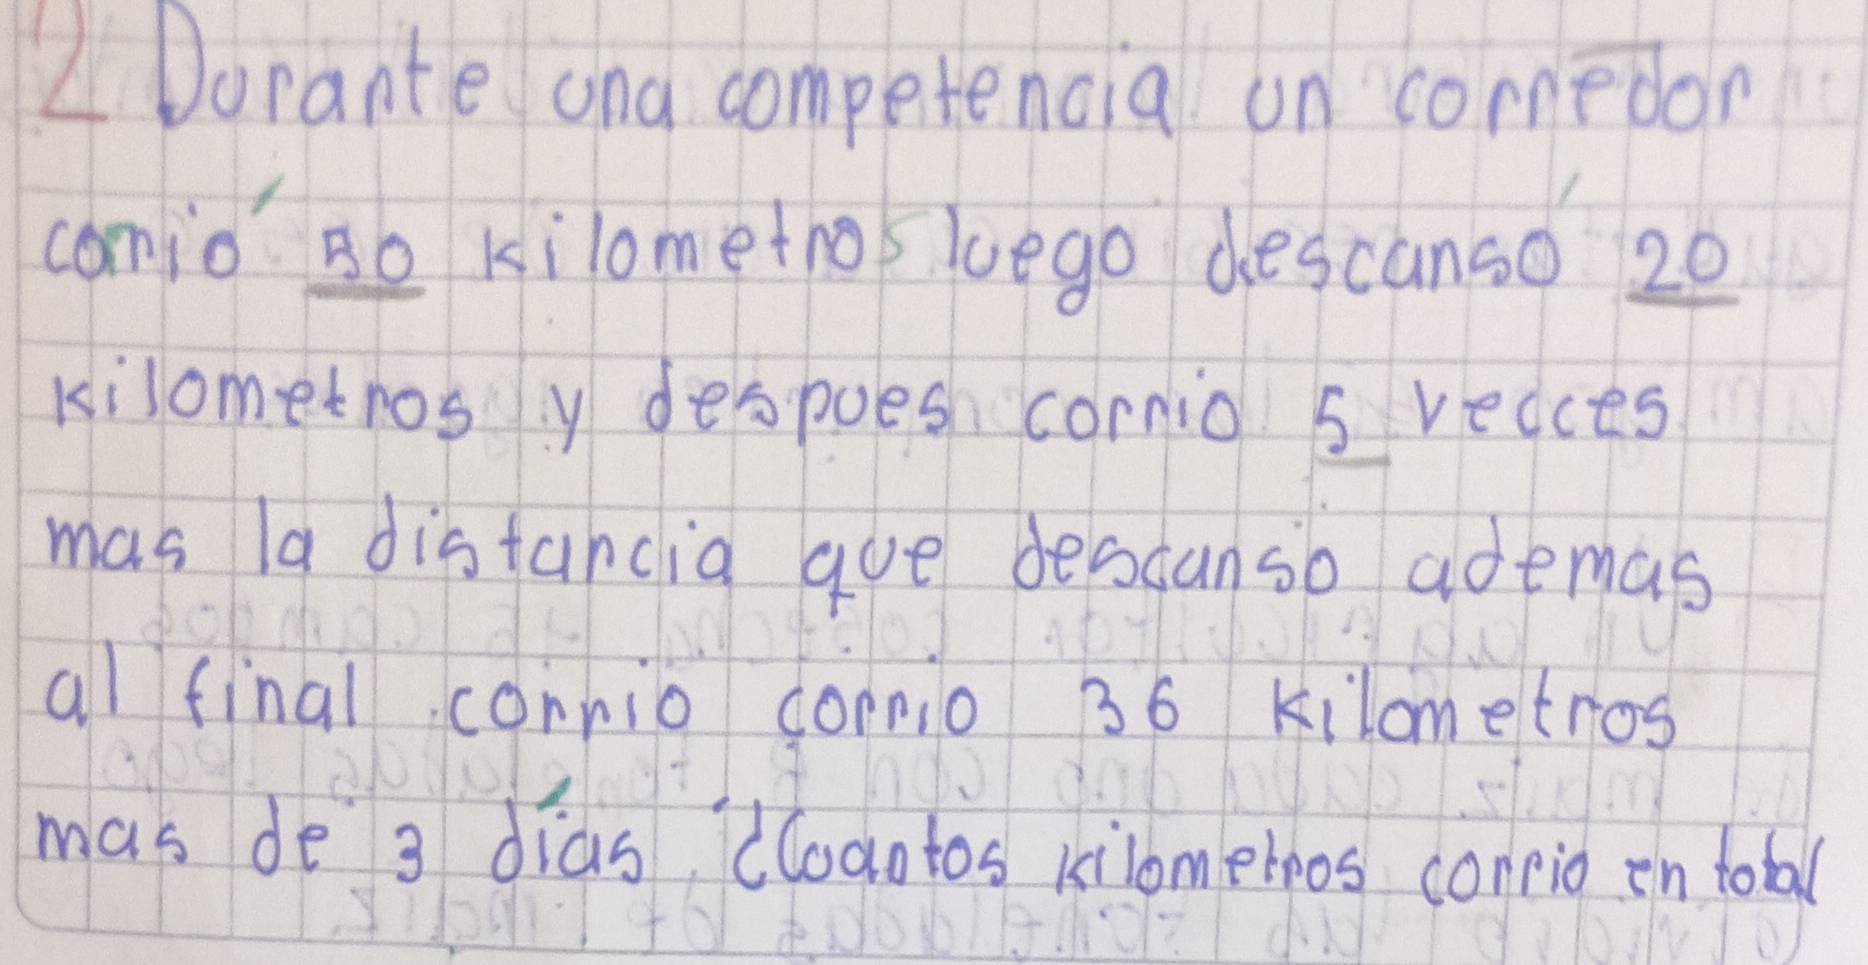 2 Durante una competencia un corredor
corrió 50 kilometros luego descansó 20
kilometros y despues corrio 5 vecces
mas la distancia que descanso ademas
al final corrio corrio 36 kilometros
mas de 3 días. ¿Cuantos kilometros corrio en total